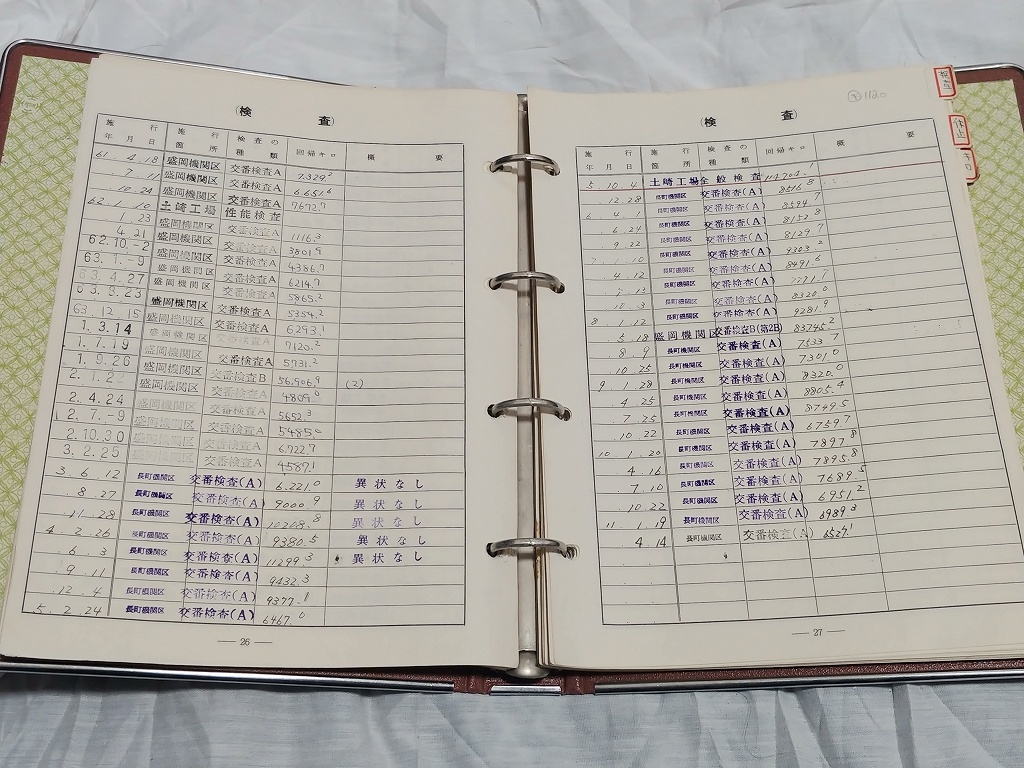 (検 査)
施行年月日 施行箇所 検査の種類 回帰キロ 概要
61. 4. 18 盛岡機関区 交番検査A 7.329²
7. 11 盛岡機関区 交番検査A 6651⁶
10. 24 盛岡機関区 交番検査A 7.672.⁷
62. 1. 10 土崎工場 性能検査
1. 23 盛岡機関区 交番検査A 1116.³
4. 21 盛岡機関区 交番検査A 3801.⁹
62. 10. -2 盛岡機関区 交番検査A 4386.⁷
63. 1. -9 盛岡機関区 交番検査A 6214.⁷
63. 4. 27 盛岡機関区 交番検査A 5865.²
63. 8. 23 盛岡機関区 交番検査A 5354.²
63. 12. 15 盛岡機関区 交番検査A 6293.¹
1. 3. 14 盛岡機関区 交番検査A 7120.²
1. 7. 19 盛岡機関区 交番検査A 5731.²
1. 9. 26 盛岡機関区 交番検査B 56,906.⁹ (2)
2. 1. 盛岡機関区 交番検査A 4809.⁰
2. 4. 24 盛岡機関区 交番検査A 5652.³
2. 7. -9 盛岡機関区 交番検査A 5485.⁰
2. 10. 30 盛岡機関区 交番検査A 6.722.⁷
3. 2. 25 盛岡機関区 交番検査A 4587.¹
3. 6. 12 長町機関区 交番検査(A) 6.221.⁰ 異状なし
8. 27 長町機関区 交番検査(A) 9000.⁹ 異状なし
11. 28 長町機関区 交番検査(A) 10208.⁸ 異状なし
4. 2. 26 長町機関区 交番検査(A) 9380.⁵ 異状なし
6. 3 長町機関区 交番検査(A) 11299.³ 異状なし
9. 11 長町機関区 交番検査(A) 9432.³
12. 4 長町機関区 交番検査(A) 9377.⁸
5. 2. 24 長町機関区 交番検査(A) 6467.⁰
— 26 —
1120
検査
休止
キロ
(検 査)
施行年月日 施行箇所 検査の種類 回帰キロ 概要
5. 10. 4 土崎工場 全般検査
12. 28 長町機関区 交番検査(A) 8516.⁸
6. 4. 1 長町機関区 交番検査(A) 8594.⁷
6. 24 長町機関区 交番検査(A) 8152.⁸
9. 22 長町機関区 交番検査(A) 8129.⁷
7. 1. 10 長町機関区 交番検査(A) 9303.²
4. 12 長町機関区 交番検査(A) 8491.⁶
長町機関区 交番検査(A)
10. 3 長町機関区 交番検査(A) 8320.⁰
8. 1. 12 長町機関区 交番検査(A) 9281.⁹
5. 18 盛岡機関区 交番検査B(第2B) 83745.²
8. 9 長町機関区 交番検査(A) 7533.⁷
10. 25 長町機関区 交番検査(A) 7301.⁰
9. 1. 28 長町機関区 交番検査(A) 8320.⁰
4. 25 長町機関区 交番検査(A) 8805.⁴
7. 25 長町機関区 交番検査(A) 8749.⁵
10. 22 長町機関区 交番検査(A) 6759.⁷
10. 1. 20 長町機関区 交番検査(A) 7897.⁸
4. 16 長町機関区 交番検査(A) 7895.⁸
7. 10 長町機関区 交番検査(A) 7689.⁵
10. 22 長町機関区 交番検査(A) 6951.²
11. 1. 19 長町機関区 交番検査(A) 6989.³
4. 14 長町機関区 交番検査(A) 6527.¹
— 27 —